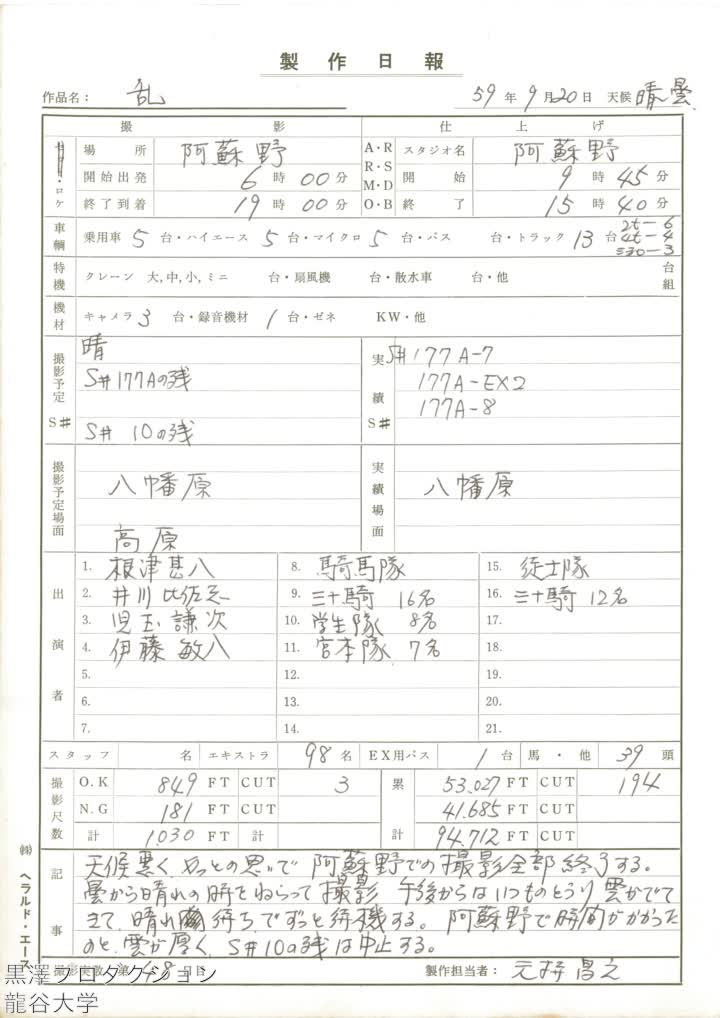 製作日報
作品名： 乱 59年9月20日 天候 晴曇
撮影 仕上げ
・ロケ 場所 阿蘇野 A・R R・S M・D O・B スタジオ名 阿蘇野
開始出発 6時00分 開始 9時45分
終了到着 19時00分 終了 15時40分
車輌 乗用車 5台・ハイエース 5台・マイクロ 5台・バス 台・トラック 13台 2t－6 4t－4 ミヨロ－3
特機 クレーン 大,中,小,ミニ 台・扇風機 台・散水車 台・他 台組
機材 キャメラ 3台・録音機材 1台・ゼネ KW・他
撮影予定 S# 晴 実績 S# S#177A-7
S#177Aの残 177A-EX2
177A-8
S# 10の残
撮影予定場面 八幡原 実績場面 八幡原
高原
出演者
1. 根津甚八 8. 騎馬隊 15. 徒士隊
2. 井川比佐志 9. 三十騎 16名 16. 三十騎 12名
3. 児玉謙次 10. 学生隊 8名 17.
4. 伊藤敏八 11. 宮本隊 7名 18.
5. 12. 19.
6. 13. 20.
7. 14. 21.
スタッフ 名 エキストラ 98名 EX用バス 1台 馬・他 39頭
撮影尺数 O.K 849 FT CUT 3 累計 53.027 FT CUT 194
N.G 181 FT CUT 41.685 FT CUT
計 1030 FT 計 94.712 FT CUT
記事 天候悪く、やっとの思いで阿蘇野での撮影全部終了する。
曇から晴れの時をねらって撮影 午後からはいつものとうり雲がでて
きて、晴れ待ちでずっと待機する。阿蘇野で時間がかかった
のと、雲が厚く、S#10の残は中止する。
撮影実数 第48日目 製作担当者：
㈱ ヘラルド・エース
黒澤プロダクション
龍谷大学